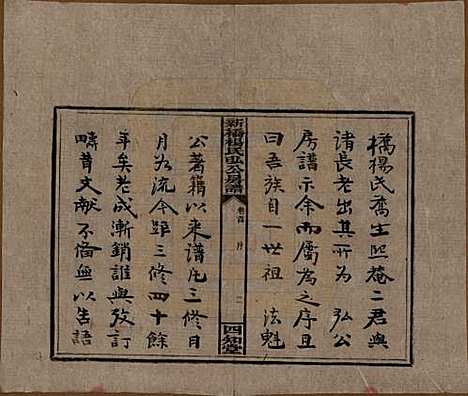 橋楊氏喬生熙菴二君與
諸長老出其所為弘公
房譜示余而屬為之序且
曰吾族自一世祖法魁
新橋楊氏弘公房譜
卷首
序
二
四知堂
公著籍以來譜凡三修日
月如流今距三修四十餘
年矣老成漸銷誰與攷訂
疇昔文献不備無以告語